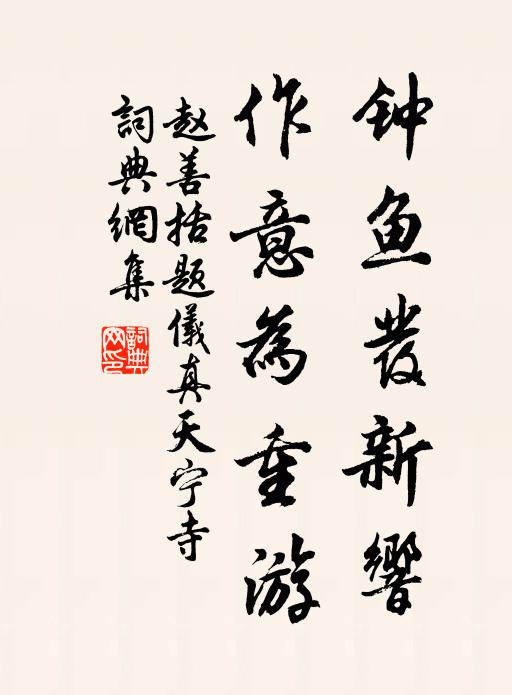 钟鱼發新響
作意為重游
赵善括题儀真天宁寺
詞典網集
詞典网印